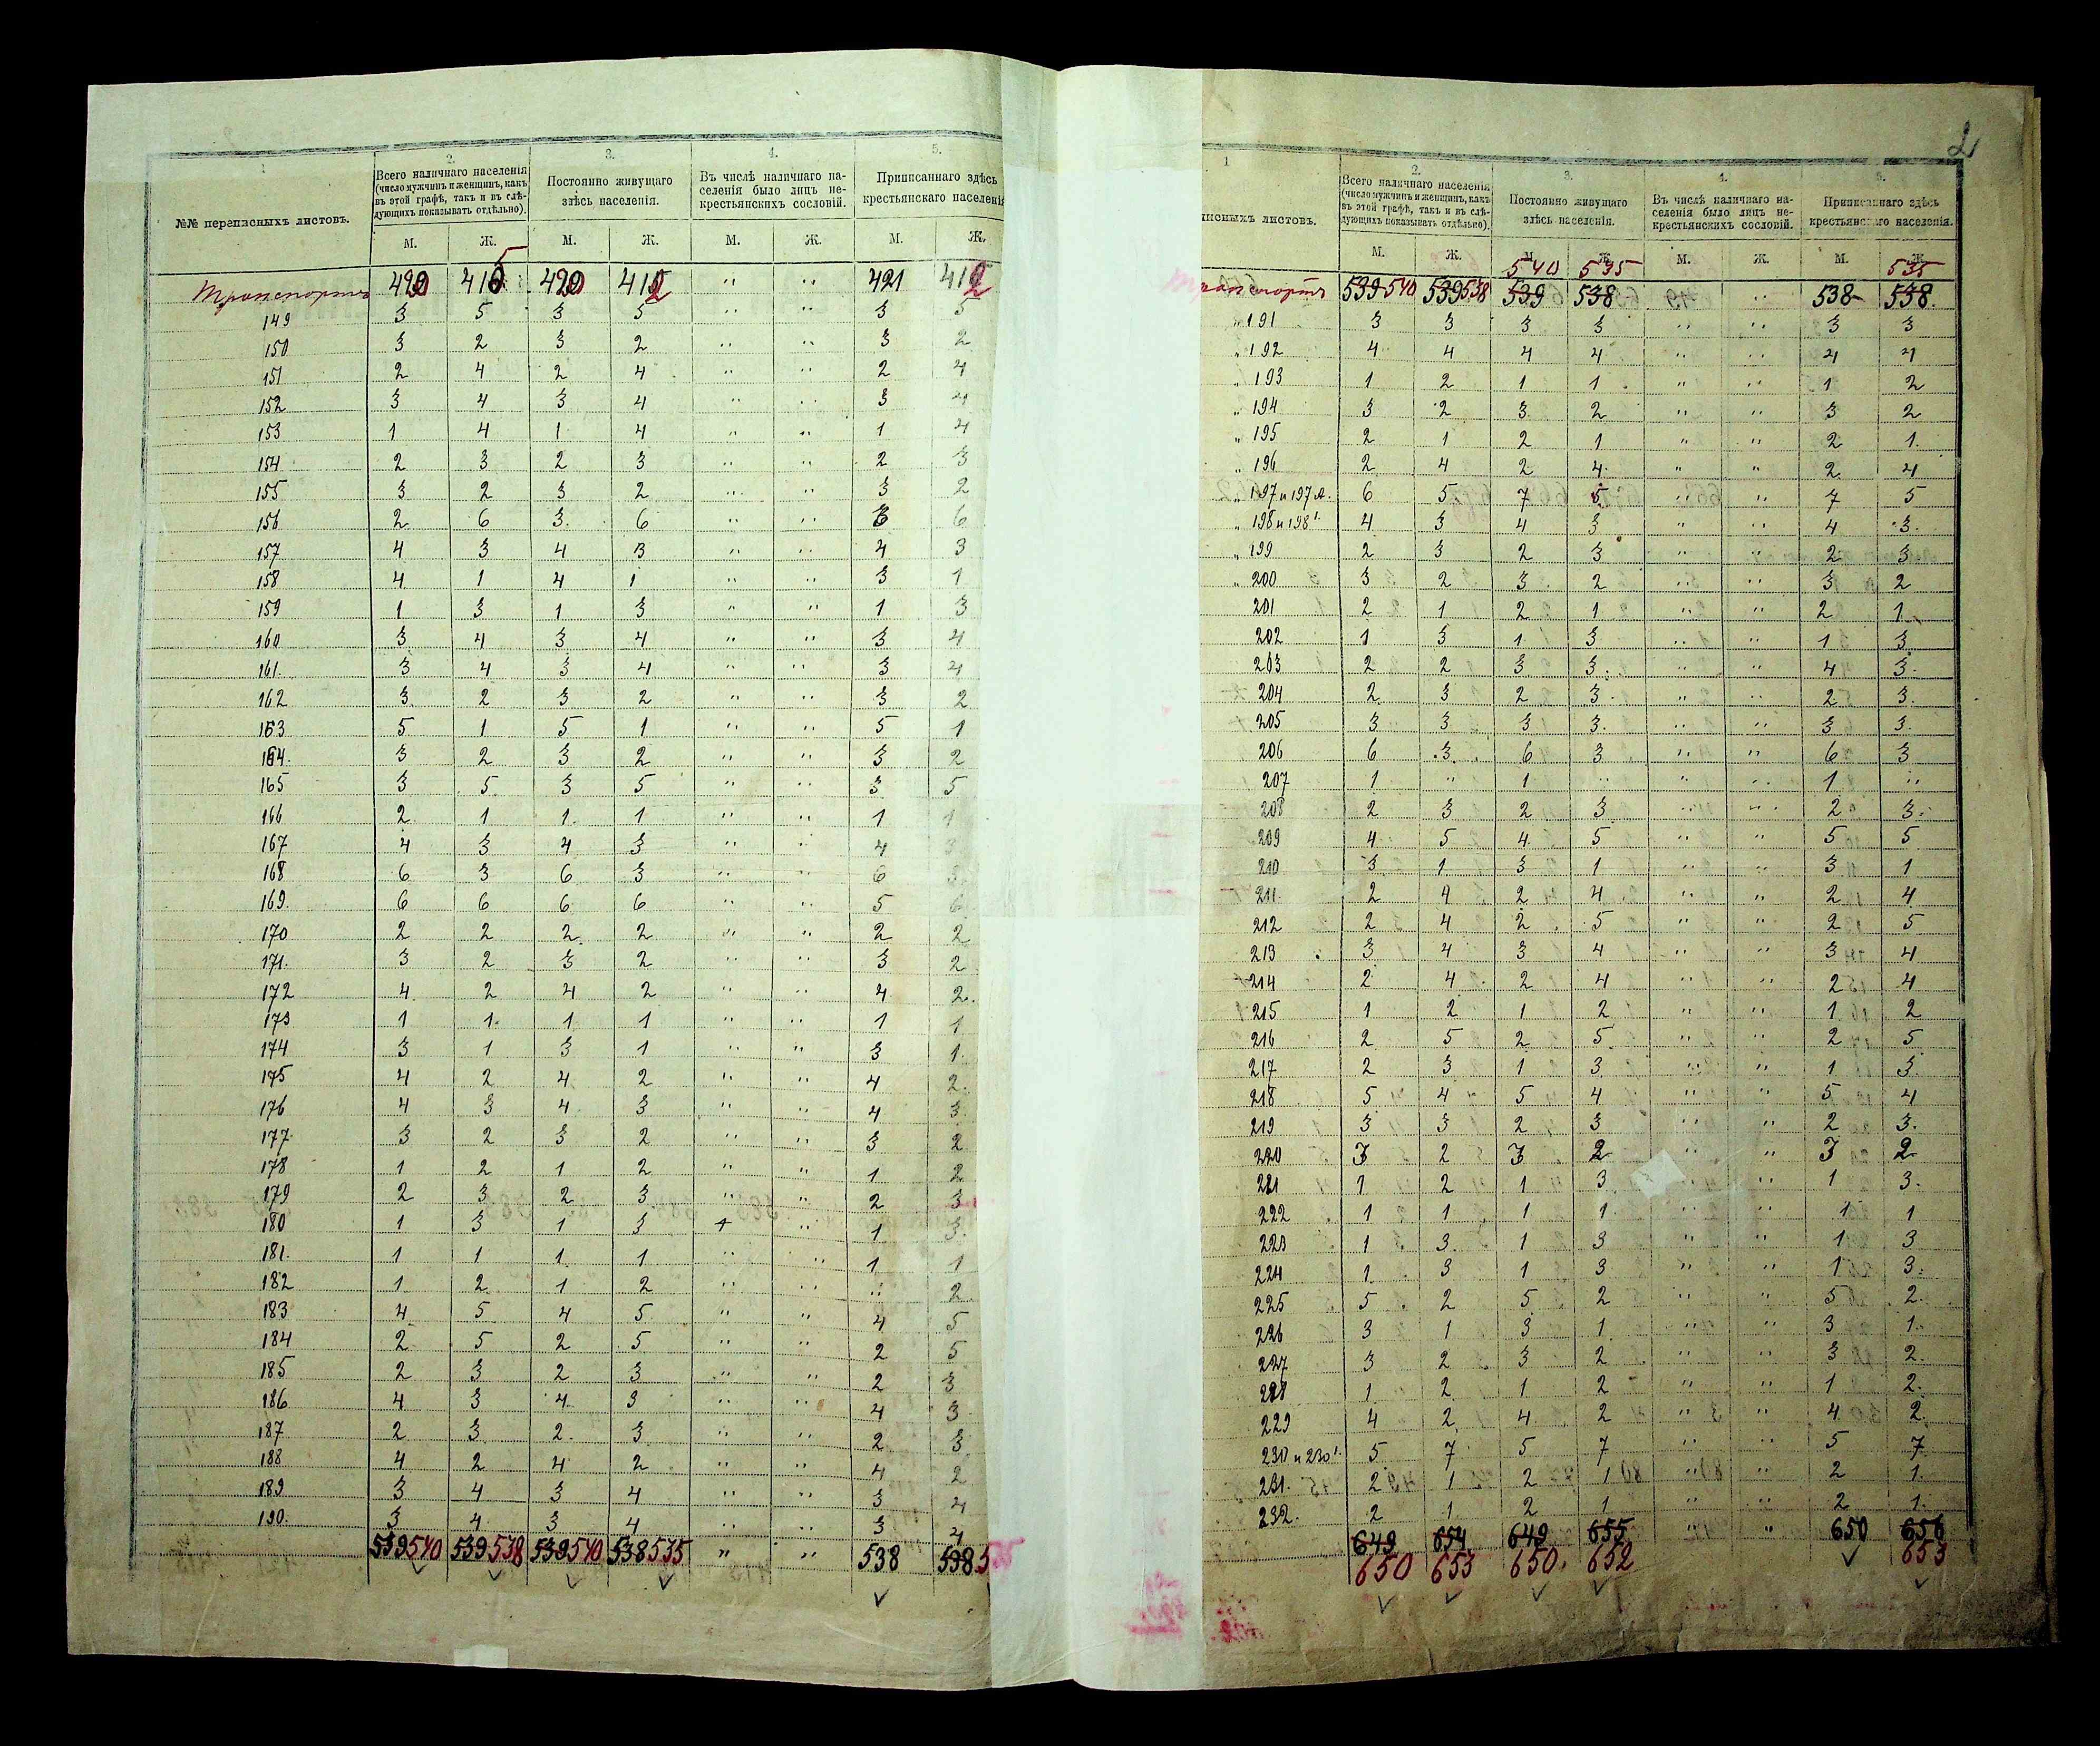 1 2. 3. 4. 5.
№№ переписныхъ листовъ. Всего наличнаго населенія (число мужчинъ и женщинъ, какъ въ этой графѣ, такъ и въ слѣдующихъ показывать отдѣльно). Постоянно живущаго здѣсь населенія. Въ числѣ наличнаго населенія было лицъ не-крестьянскихъ сословій. Приписаннаго здѣсь крестьянскаго населенія
М. Ж. М. Ж. М. Ж. М. Ж.
Транспортъ 421
149 3 5 3 5 " " 3 5
150 3 2 3 2 " " 3 2
151 2 4 2 4 " " 2 4
152 3 4 3 4 " " 3 4
153 1 4 1 4 " " 1 4
154 2 3 2 3 " " 2 3
155 3 2 3 2 " " 3 2
156 2 6 3 6 " " 3 6
157 4 3 4 3 " " 4 3
158 4 1 4 1 " " 3 1
159 1 3 1 3 " " 1 3
160 3 4 3 4 " " 3 4
161. 3 4 3 4 " " 3 4
162 3 2 3 2 " " 3 2
163 5 1 5 1 " " 5 1
164. 3 2 3 2 " " 3 2
165 3 5 3 5 " " 3 5
166 2 1 1 1 " " 1 1
167 4 3 4 3 " " 4 3
168 6 3 6 3 " " 6 3
169. 6 6 6 6 " " 5 6
170 2 2 2 2 " " 2 2
171. 3 2 3 2 " " 3 2
172 4 2 4 2 " " 4 2.
173 1 1 1 1 " " 1 1
174 3 1 3 1 " " 3 1.
175 4 2 4 2 " " 4 2.
176 4 3 4 3 " " 4 3
177. 3 2 3 2 " " 3 2
178 1 2 1 2 " " 1 2
179 2 3 2 3 " " 2 3
180 1 3 1 3 + " 1 3.
181. 1 1 1 1 " " 1 1
182 1 2 1 2 " " " 2
183 4 5 4 5 " " 4 5
184 2 5 2 5 " " 2 5
185 2 3 2 3 " " 2 3
186 4 3 4 3 " " 4 3
187 2 3 2 3 " " 2 3
188 4 2 4 2 " " 4 2
189 3 4 3 4 " " 3 4
190. 3 4 3 4 " " 3 4
539 540 539 538 539 540 538 535 " " 538 538
2
1 2. 3. 4. 5.
листовъ. Всего наличнаго населенія (число мужчинъ и женщинъ, какъ въ этой графѣ, такъ и въ слѣдующихъ показывать отдѣльно). Постоянно живущаго здѣсь населенія. Въ числѣ наличнаго населенія было лицъ не-крестьянскихъ сословій. Приписаннаго здѣсь крестьянскаго населенія.
М. Ж. М. Ж. М. Ж. М. Ж.
540 535 535
Транспортъ 539 540 539 538 539 538 538 538.
" 191 3 3 3 3 " " 3 3
" 192 4 4 4 4 " " 4 4
" 193 1 2 1 1 " " 1 2
" 194 3 2 3 2 " " 3 2
" 195 2 1 2 1 " " 2 1.
" 196 2 4 2 4 " " 2 4
" 197 и 197 А. 6 5 7 5 " " 7 5
" 198 и 198¹. 4 3 4 3 " " 4 3.
" 199 2 3 2 3 " " 2 3
" 200 3 2 3 2 " " 3 2
201 2 1 2 1 " " 2 1
202 1 3 1 3 " " 1 3
203 2 2 3 3 " " 4 3.
204 2 3 2 3 " " 2 3.
205 3 3 3 3 " " 3 3.
206 6 3 6 3 " " 6 3
207 1 " 1 " " " 1 "
208 2 3 2 3 " " 2 3.
209 4 5 4 5 " " 5 5
210 3 1 3 1 " " 3 1
211. 2 4 2 4 " " 2 4
212 2 4 2 5 " " 2 5
213 3 4 3 4 " " 3 4
214 2 4 2 4 " " 2 4
215 1 2 1 2 " " 1 2
216 2 5 2 5 " " 2 5
217 2 3 1 3 " " 1 3
218 5 4 5 4 " " 5 4
219 3 3 2 3 " " 2 3.
220 3 2 3 2 " " 3 2
221 1 2 1 3 " " 1 3.
222 1 1 1 1 " " 1 1
223 1 3 1 3 " " 1 3
224 1 3 1 3 " " 1 3.
225 5 2 5 2 " " 5 2.
226 3 1 3 1 " " 3 1.
227 3 2 3 2 " " 3 2.
228 1 2 1 2 " " 1 2.
229 4 2 4 2 " " 4 2
230 и 230¹. 5 7 5 7 " " 5 7
231. 2 1 2 1 " " 2 1.
232. 2 1 2 1 " " 2 1.
649 654 649 655 " " 650 656
650 653 650. 652 653